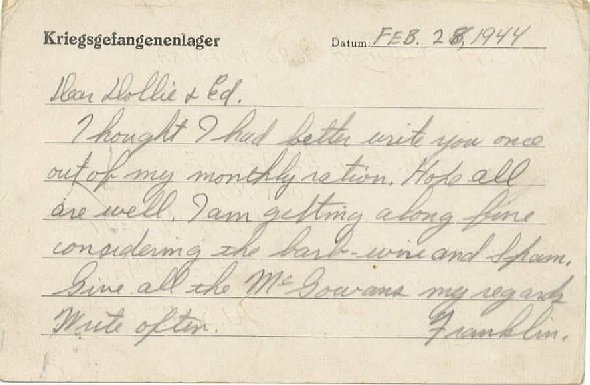 Kriegsgefangenenlager Datum: FEB. 28, 1944
Dear Dollie & Ed.
Thought I had better write you once
out of my monthly ration. Hope all
are well. I am getting along fine
considering the barb-wire and Spam.
Give all the McGowans my regards
Write often. Franklin.